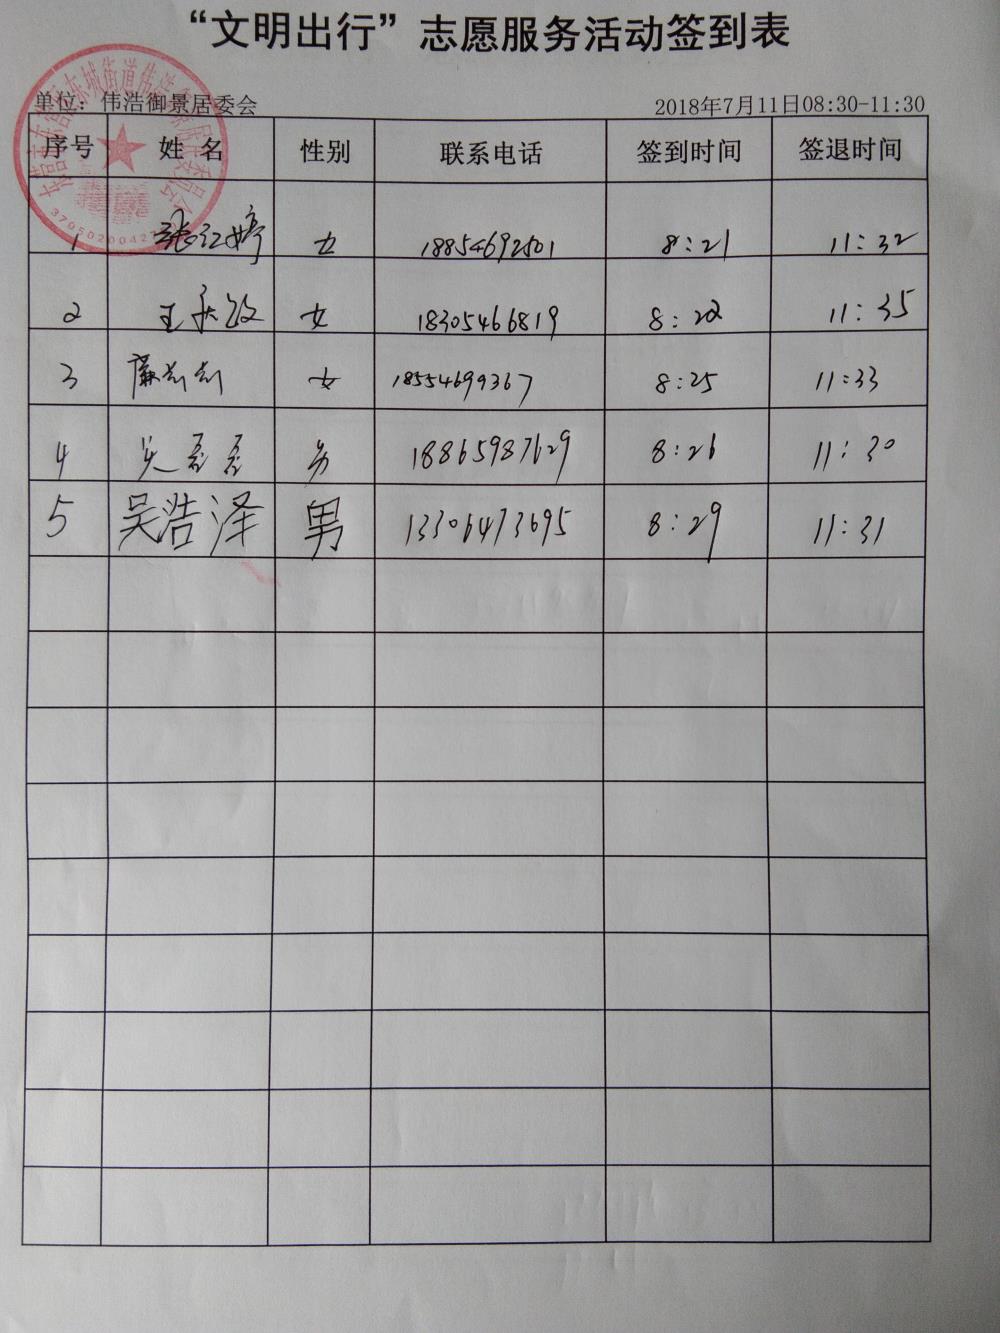 “文明出行”志愿服务活动签到表
单位：伟浩御景居委会 2018年7月11日08:30-11:30
序号 姓 名 性别 联系电话 签到时间 签退时间
1 张红婷 女 18854692501 8:21 11:32
2 王 女 18305466819 8:22 11:35
3 女 18554699367 8:25 11:33
4 吴磊磊 男 18865987629 8:26 11:30
5 吴浩泽 男 13306473695 8:29 11:31